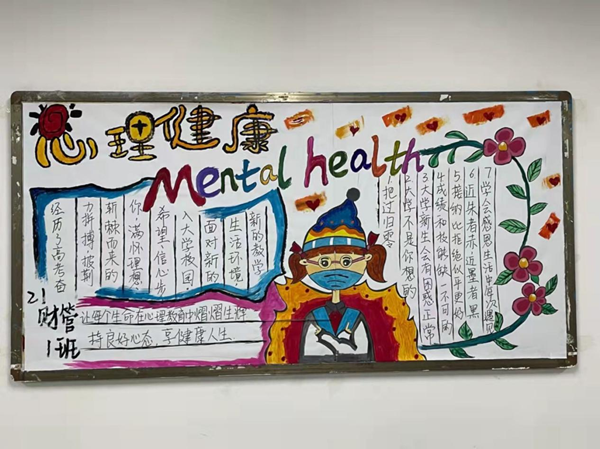 心理健康
Mental health
经历了高考百
力拼搏,披荆
斩棘而来的
你,满怀理想
希望,信心步
入大学校园,
面对新的
生活环境
新的教学
把过归零
2大学不是你想的
3大学新生会有困惑正常
4成绩和技能缺一不可的
5接纳比拒绝似乎更好
6近朱者赤近墨者黑
7学会感恩生活遇见
让每个生命在心理教育中熠熠生辉
持良好心态 享健康人生
21
财管
1班